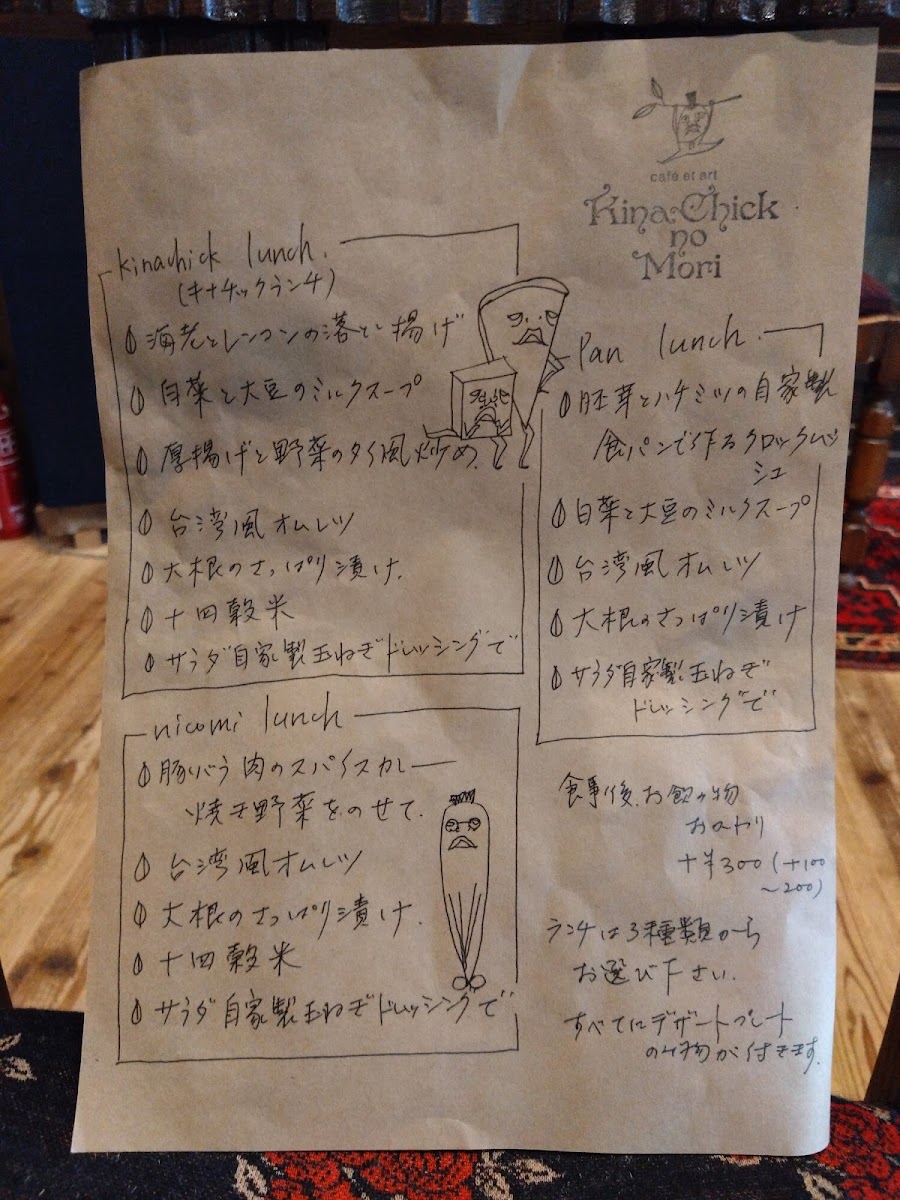 café et art
Kina:Chick
no
Mori
kinachick lunch.
(キナチックランチ)
海老とレンコンの落とし揚げ
白菜と大豆のミルクスープ
厚揚げと野菜のタイ風炒め
台湾風オムレツ
大根のさっぱり漬け.
十四穀米
サラダ自家製玉ねぎドレッシングで
Pan lunch.
胚芽とハチミツの自家製
食パンで作るクロックムッ
シュ
白菜と大豆のミルクスープ
台湾風オムレツ
大根のさっぱり漬け
サラダ自家製玉ねぎ
ドレッシングで
nicomi lunch
豚バラ肉のスパイスカレー
焼き野菜をのせて.
台湾風オムレツ
大根のさっぱり漬け.
十四穀米
サラダ自家製玉ねぎドレッシングで
食事後、お飲み物
おかわり
+¥300(+100
~200)
ランチは3種類から
お選び下さい.
すべてにデザートプレート
が付きます.